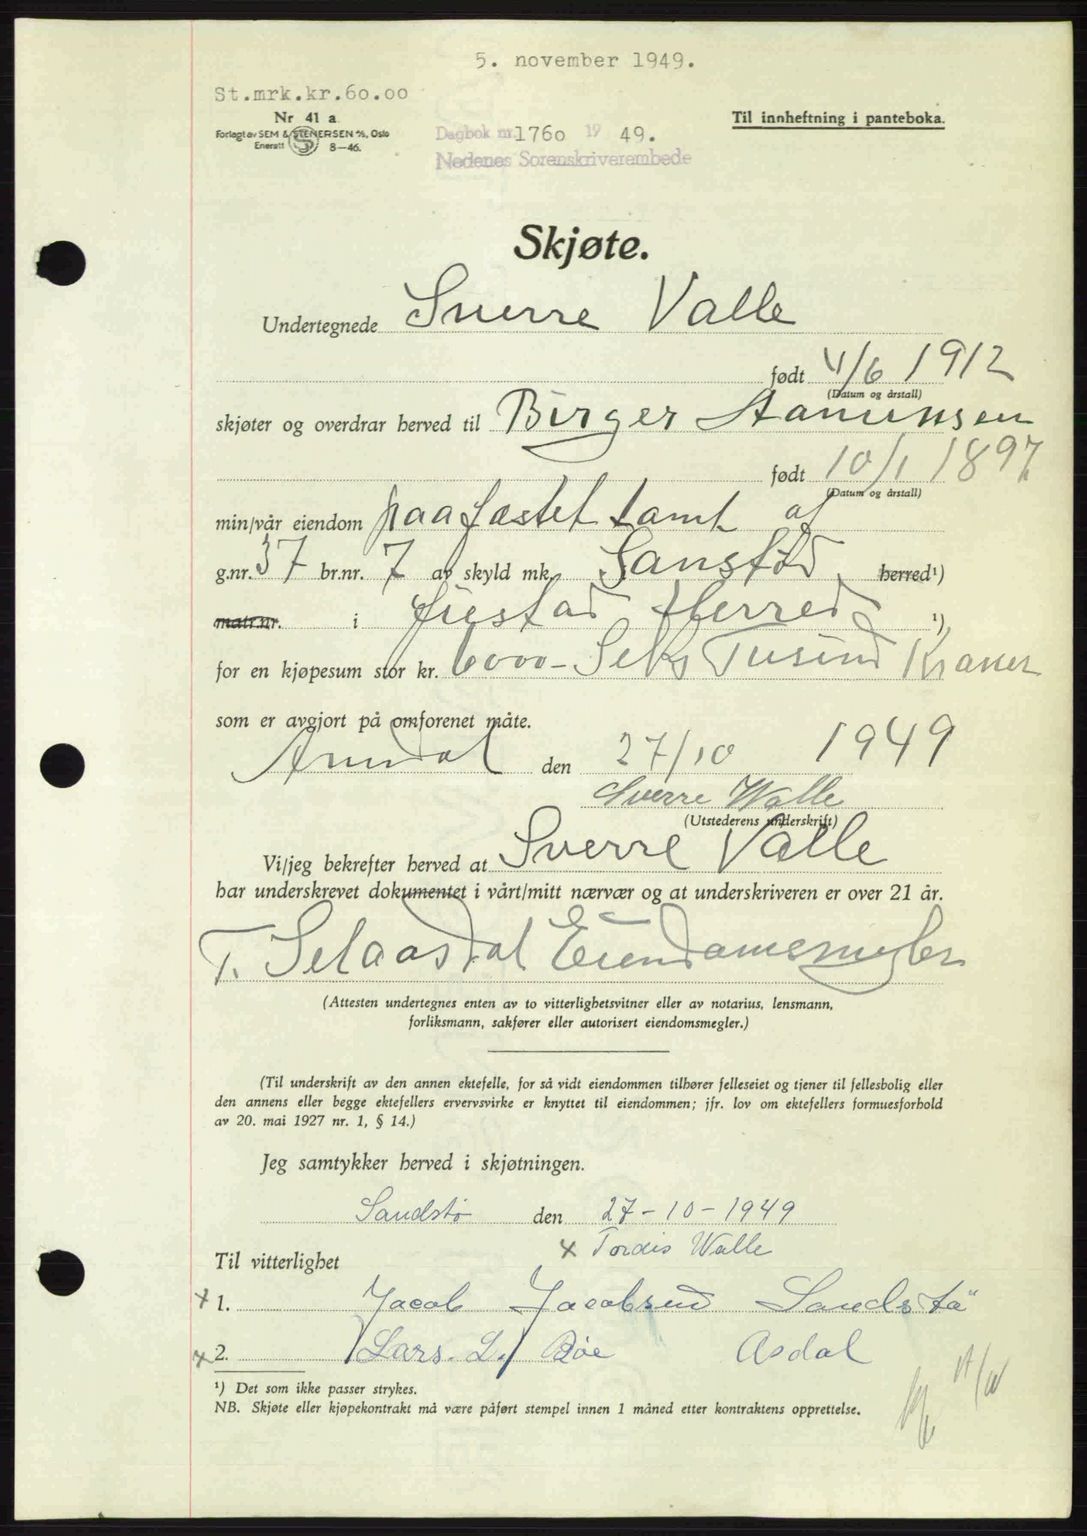 5. november 1949.
St.mrk.kr.60.00
Nr 41 a
Til innheftning i panteboka.
Forlagt av SEM & STENERSEN A/S, Oslo
Enerett S 8-46.
Dagbok nr. 1760 19 49.
Nedenes Sorenskriverembede
Skjøte.
Undertegnede Sverre Valle
født 4/6 1912
(Datum og årstall)
skjøter og overdrar herved til Birger Aamunsen
født 10/1 1897
(Datum og årstall)
min/vår eiendom paa fæstet tomt af
g.nr. 37 br.nr. 7 av skyld mk. Sanstød herred¹)
matr.nr. i Øiestad Herred ¹)
for en kjøpesum stor kr. 6000- Seks Tusind Kroner
som er avgjort på omforenet måte.
Arendal den 27/10 1949
Sverre Walle
(Utstederens underskrift)
Vi/jeg bekrefter herved at Sverre Valle
har underskrevet dokumentet i vårt/mitt nærvær og at underskriveren er over 21 år.
T. Selaasdal Eiendomsmegler
(Attesten undertegnes enten av to vitterlighetsvitner eller av notarius, lensmann,
forliksmann, sakfører eller autorisert eiendomsmegler.)
(Til underskrift av den annen ektefelle, for så vidt eiendommen tilhører felleseiet og tjener til fellesbolig eller
den annens eller begge ektefellers ervervsvirke er knyttet til eiendommen; jfr. lov om ektefellers formuesforhold
av 20. mai 1927 nr. 1, § 14.)
Jeg samtykker herved i skjøtningen.
Sandstø den 27-10-1949
x Tordis Walle
Til vitterlighet
x 1. Jacob Jacobsen Sandstø
x 2. Lars. L. Bøe Asdal
¹) Det som ikke passer strykes.
NB. Skjøte eller kjøpekontrakt må være påført stempel innen 1 måned etter kontraktens opprettelse.